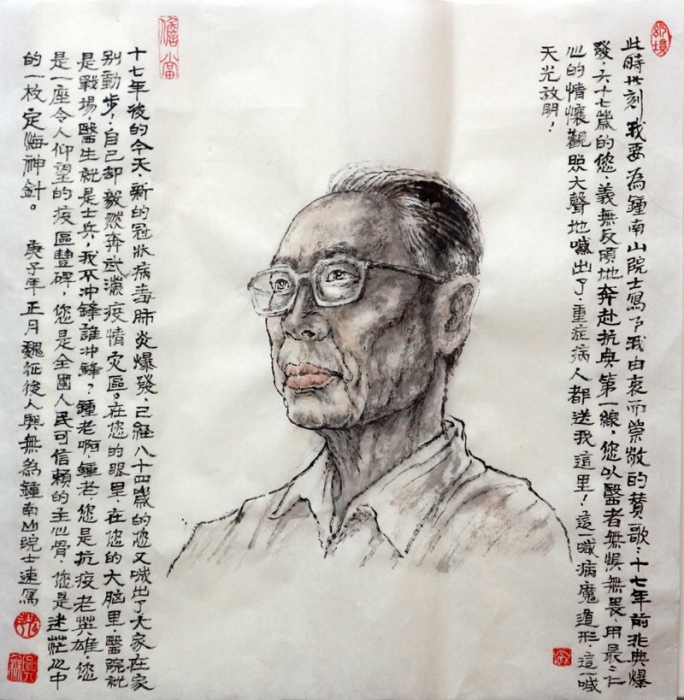 此時此刻 我要為鍾南山院士寫下我由衷而崇敬的贊歌：十七年前非典爆
發，六十七歲的您，義無反顧地奔赴抗典第一線，您以醫者無懼無畏，用最仁
心的情懷觀照大聲地喊出了：重症病人都送我這里！這一喊病魔遁形，這一喊
天光放明！
十七年後的今天，新的冠狀病毒肺炎爆發，已經八十四歲的您又喊出了大家在家
別動步！自己却毅然奔武漢疫情灾區。在您的眼里，在您的大脑里，醫院就
是戰場，醫生就是士兵，我不冲鋒誰冲鋒？鍾老啊，鍾老您是抗疫老英雄，您
是一座令人仰望的疫區豐碑，您是全國人民可信賴的主心骨，您是迷茫之中
的一枚定海神針。 庚子年正月魏征後人與無為鍾南山院士速寫